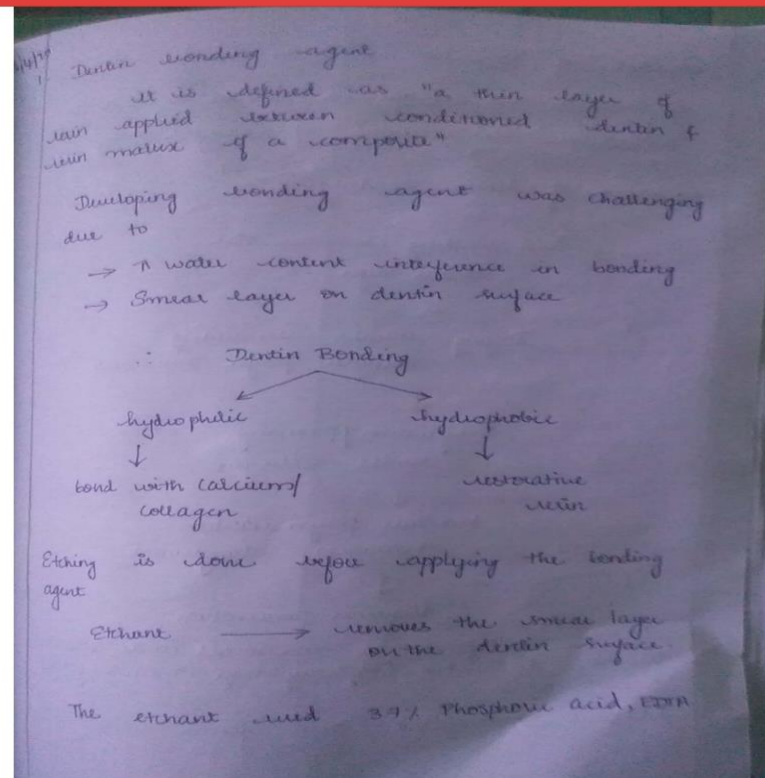 Dentin bonding agent
It is defined as "a thin layer of
resin applied between conditioned dentin &
resin matrix of a composite"
Developing bonding agent was challenging
due to
→ ↑ water content interference in bonding
→ Smear layer on dentin surface
∴ Dentin Bonding
hydrophilic hydrophobic
↓ ↓
bond with calcium/ restorative
collagen resin
Etching is done before applying the bonding
agent
Etchant → removes the smear layer
on the dentin surface.
The etchant used 37% Phosphoric acid, EDTA